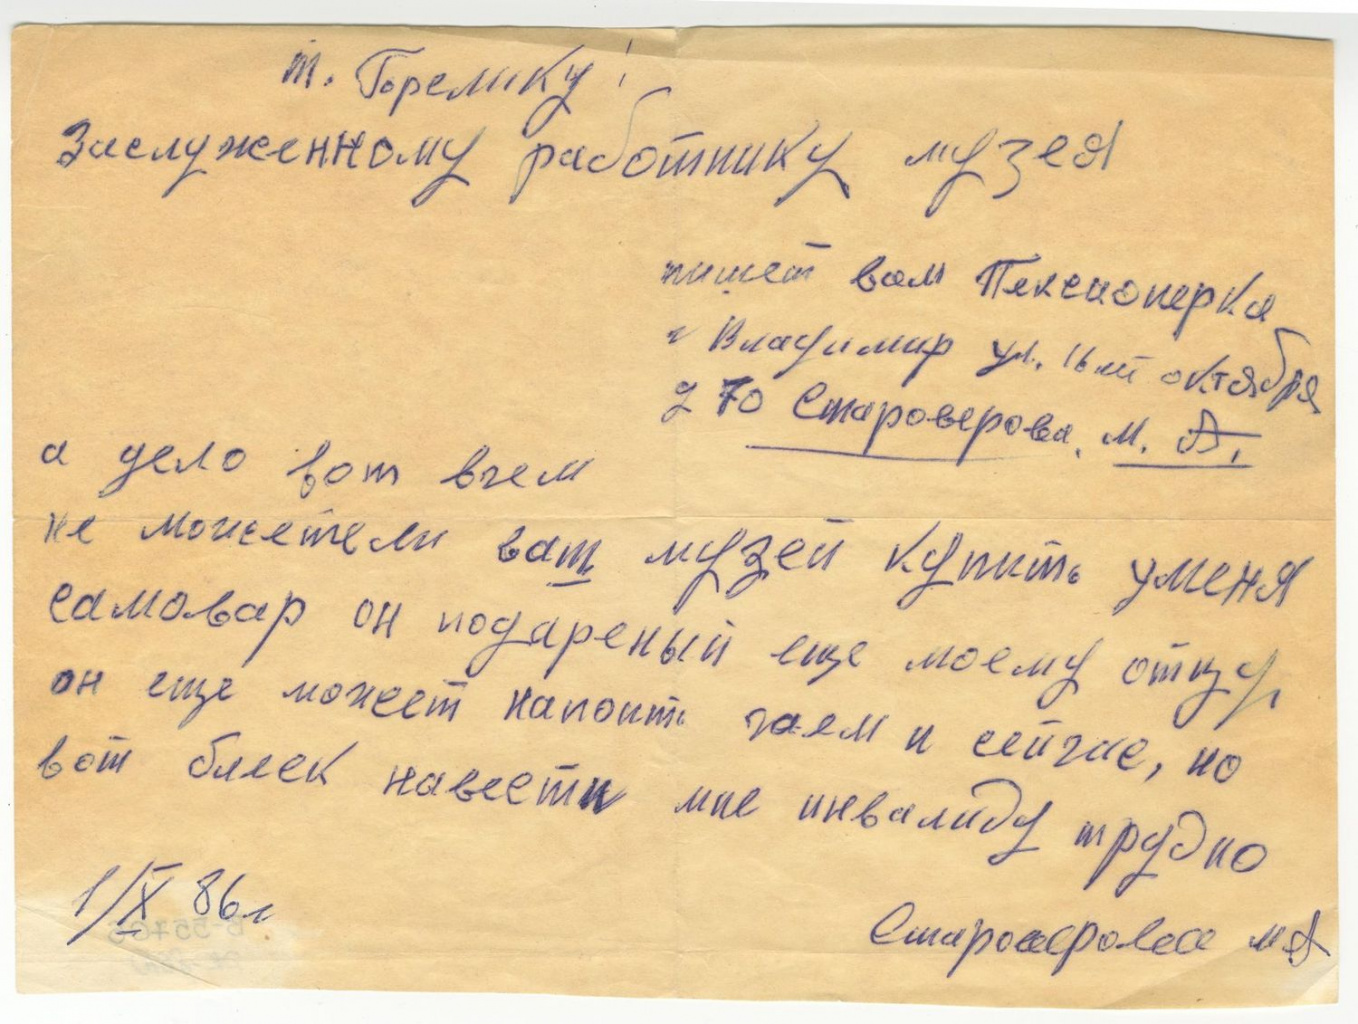 т. Горелику!
Заслуженному работнику музея
пишет вам Пенсионерка
г Владимир ул. 16 лет октября
д 70 Староверова. М. А.
а дело вот вчем
не можетели ваш музей купить уменя
самовар он подареный еще моему отцу,
он еще может напоить чаем и сейчас, но
вот блеск навести мне инвалиду трудно
1/IX 86 г
Староверова М А